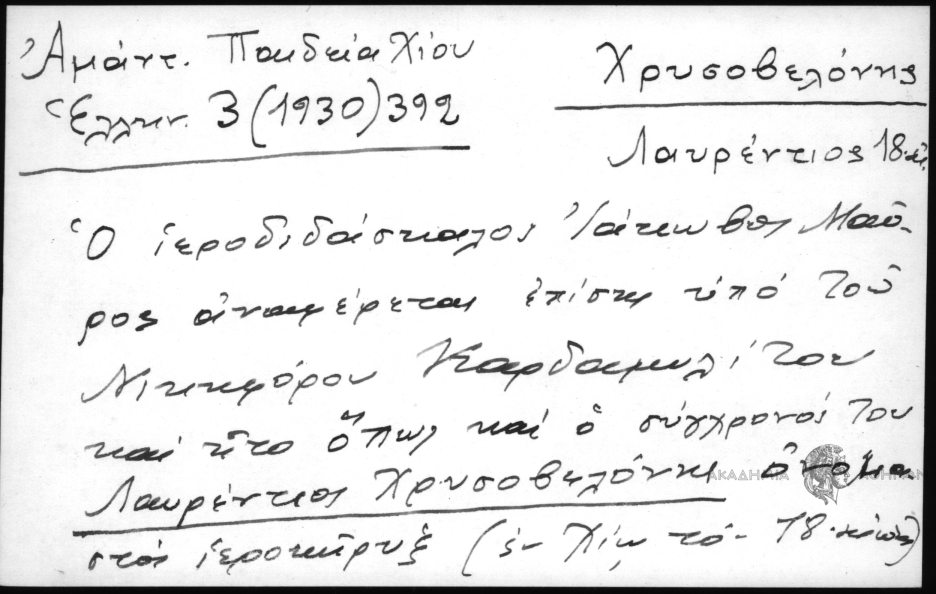 Ἀμάντ. Παιδεία Χίου
Ἑλλην. 3 (1930) 392
Χρυσοβελόνης
Λαυρέντιος 18.
Ὁ ἱεροδιδάσκαλος Ἰάκωβος Μαῦ-
ρος ἀναφέρεται ἐπίσης ὑπό τοῦ
Νικηφόρου Καρδαμυλίτου
καί ἦτο ὅπως καί ὁ σύγχρονός του
Λαυρέντιος Χρυσοβελόνης ὀνομα
στός ἱεροκῆρυξ (ἐν Χίῳ τόν 18.
ΑΚΑΔΗΜΙΑ ΑΘΗΝΩΝ